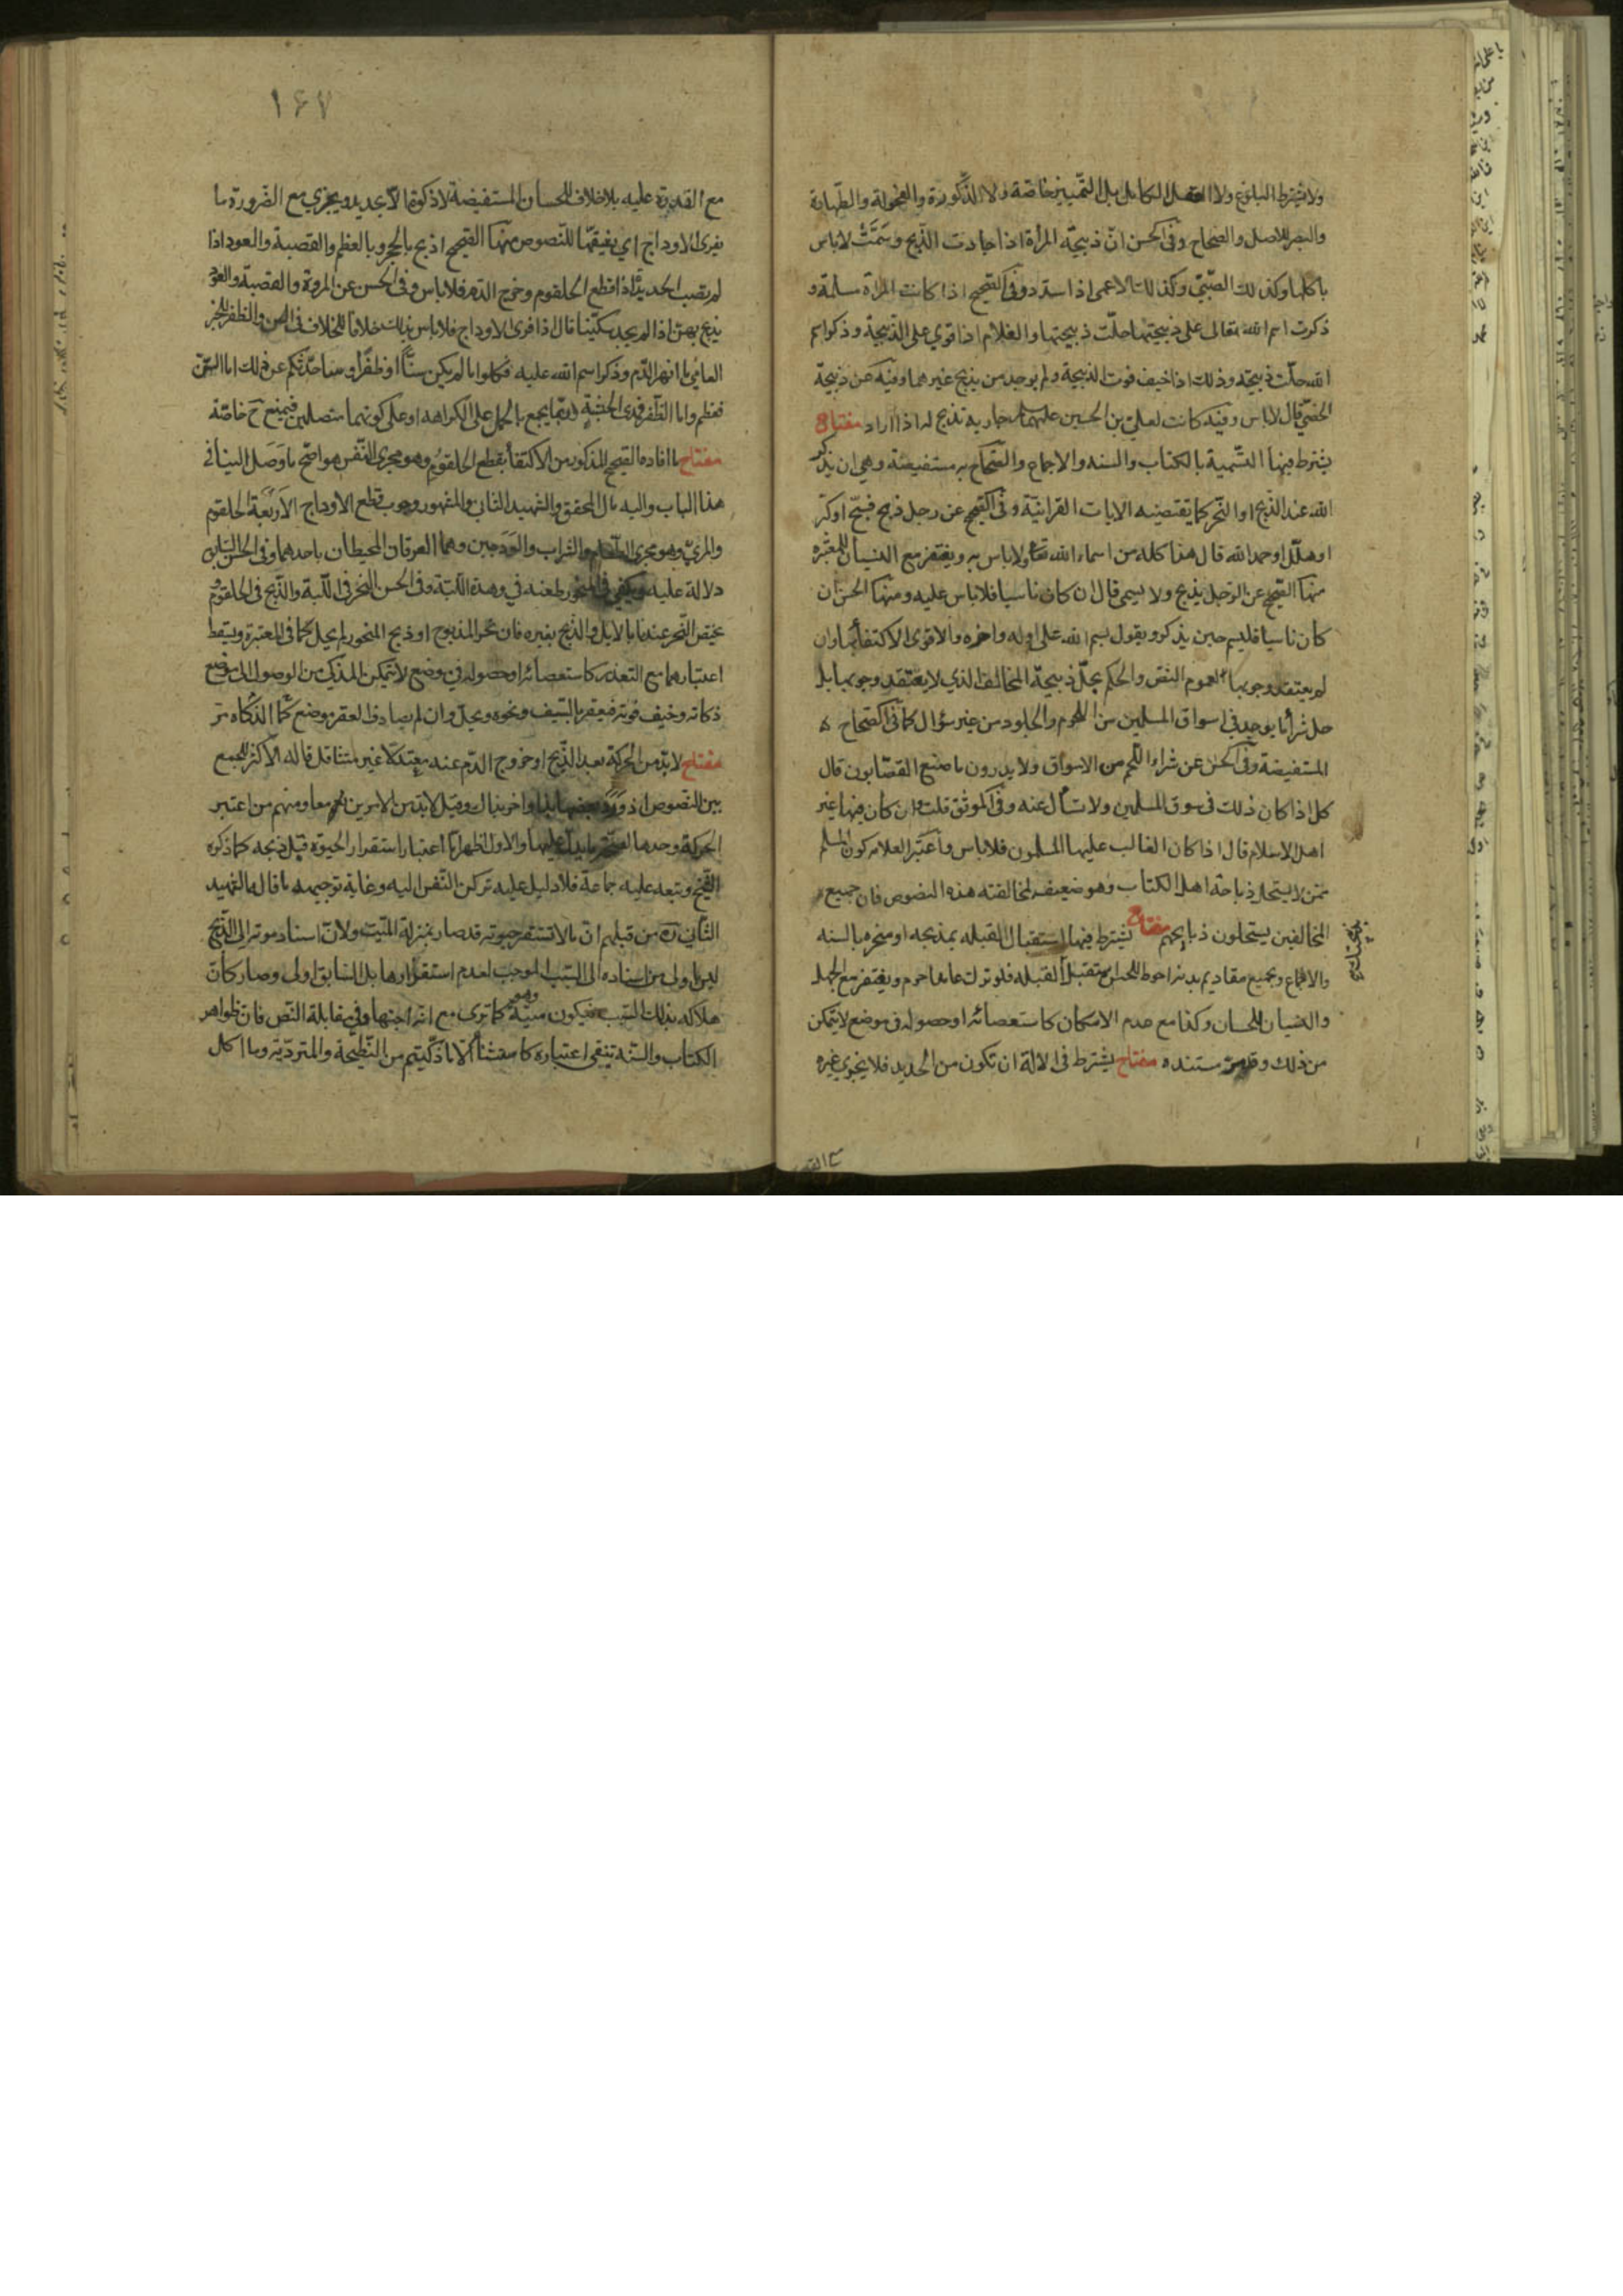 ولا يشترط البلوغ ولا العقل الكامل بل التمييز خاصة ولا الذكورة والفحولة والطهارة
والبصر للاصل والصحاح وفى الحسن انّ ذبيحة المرأة اذا اجادت الذبح وسمّت لاباس
باكلها وكذلك الصّبىّ وكذلك الاعمى اذا سدد وفى الصحيح اذا كانت المراة مسلمة و
ذكرت اسم الله تعالى على ذبيحتها حلّت ذبيحتها والغلام اذا قوي على الذبيحة وذكر اسم
الله حلّت ذبيحته وذلك اذا خيف فوت الذبيحة ولم يوجد من يذبح غيرهما وفيه عن ذبيحة
الخصىّ قال لاباس وفيه كانت لعلىّ بن الحسين عليهما جارية تذبح له اذا اراد مفتاح
يشترط فيها التّسمية بالكتاب والسنه والاجماع والصّحاح به مستفيضة وهى ان يذكر
الله عند الذّبح او النّحر كما يقتضيه الايات القرانيّة وفى الصّحيح عن رجل ذبح فسبّح او كبّر
او هلّل او حمد الله قال هذا كله من اسماء الله تعا ولاباس به ويغتفر مع النسيان للمعتبرة
منها الصّحيح عن الرّجل يذبح ولا يسمى قال ان كان ناسيا فلاباس عليه ومنها الحسن ان
كان ناسيا فليسم حين يذكر ويقول بسم الله على اوله واخره والاقوى الاكتفأ بها وان
لم يعتقد وجوبها لعموم النّص والحكم بحلّ ذبيحة المخالف الذي لا يعتقد وجوبها بل
حل شرأ ما يوجد فى اسواق المسلمين من اللحوم والجلود من غير سؤال كما فى الصّحاح
المستفيضة وفى الحسن عن شراء اللّحم من الاسواق ولا يدرون ما صنع القصّابون قال
كل اذا كان ذلك فى سوق المسلمين ولا تسأل عنه وفى الموثق قلت وان كان فيها غير
اهل الاسلام قال اذا كان الغالب عليها المسلمون فلاباس واعتبر العلامه كون المسلم
ممّن لا يستحل ذباحة اهل الكتاب وهو ضعيف لمخالفته هذه النصوص فان جميع
المخالفين يستحلون ذبايحهم مفتاح يشترط فيها استقبال القبله بمذبحه او منحره بالسنه
والاجماع وبجميع مقاديم بدنه احوط للحسن استقبل القبله فلو ترك عامدا حرم ويغتفر مع الجهل
والنسيان للحسان وكذا مع عدم الامكان كاستعصائه او حصوله فى موضع لا يتمكن
من ذلك وقد مرّ مستنده مفتاح يشترط فى الالة ان تكون من الحديد فلا يجزي غيره
١٤٧
مع القدرة عليه بلا خلاف للحسان المستفيضة لا ذكوة الّا بحديد ويجزي مع الضّرورة ما
يفرى الاوداج اي يشقّها للنّصوص منها الصّحيح اذبح بالحجر وبالعظم والقصبة والعود اذا
لم تصب الحديد اذا قطع الحلقوم وخرج الدّم فلا باس وفى الحسن عن المروة والقصبة والعود
يذبح بهنّ اذا لم يجد سكّينا قال اذا فرى الاوداج فلاباس بذلك خلافا للخلاف فى السن والظفر للخبر
العامّى ما انهر الدّم وذكر اسم الله عليه فكلوا ما لم يكن سنّاً او ظفراً وساحدّثكم عن ذلك اما السّن
فعظم واما الظّفر فمدى الحبشة وربّما يجمع بالحمل على الكراهه او على كونهما متصلين فيمنع ح خاصّة
مفتاح ما افاده الصّحيح المذكور من الاكتفأ بقطع الحلقوم وهو مجرى النّفس هو اصّح ما وصل الينا فى
هذا الباب واليه مال المحقق والشهيد الثانى والمشهور وجوب قطع الاوداج الاربعة الحلقوم
والمرئ وهو مجرى الطّعام والشراب والودجين وهما العرقان المحيطان باحدهما وفى الحسن السّابق
دلالة عليه ويكفى فى المنحور طعنه في وهدة اللّبّة وفى الحسن النّحر فى اللّبة والذّبح فى الحلقوم و
يختص النّحر عندنا بالابل والذّبح بغيره فان نحر المذبوح او ذبح المنحور لم يحل كما فى المعتبرة ويسقط
اعتبارهما مع التعذر كاستعصائه او حصوله في موضع لا يتمكن المذكى من الوصول الى موضع
ذكاته وخيف فوته فيعقر بالسّيف ونحوه ويحلّ وان لم يصادف العقر موضع الذّكاه كما مرّ
مفتاح لا بدّ من الحركة بعد الذّبح او خروج الدّم عنده معتدلا غير متثاقل قاله الاكثر للجمع
بين النّصوص اذ ورد بعضها بهذا واخر بذاك وقيل لا بدّ من الامرين معا ومنهم من اعتبر
الحركة وحدها لصحّة ما يدلّ عليها والاول اظهر امّا اعتبار استقرار الحيوة قبل ذبحه كما ذكره
الشّيخ وتبعه عليه جماعة فلا دليل عليه تركن النّفس اليه وغاية توجيهه ما قاله الشهيد
الثّاني ره من قبلهم انّ ما لا تستقر حيوته قد صار بمنزلة الميّت ولانّ اسناد موته الى الذّبح
ليس باولى من اسناده الى السّبب الموجب لعدم استقرارها بل السّابق اولى وصار كأن
هلاكه بذلك السّبب فيكون ميتة وهو كما ترى مع انّه اجتهاد فى مقابلة النّص فان ظواهر
الكتاب والسّنّة تنفى اعتباره كاستثنأ الّا ما ذكّيتم من النّطيحة والمتردّية وما اكل